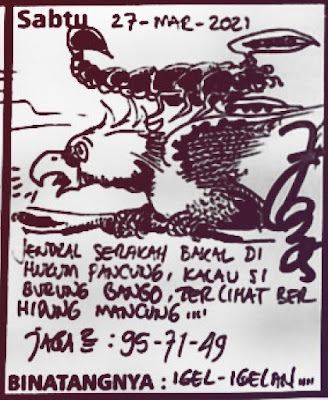 Sabtu 27-MAR-2021
JENDRAL SERAKAH BAKAL DI
HUKUM PANCUNG, KALAU SI
BURUNG BANGO, TERLIHAT BER
HIDUNG MANCUNG""
JAGA2 : 95-71-49
BINATANGNYA : IGEL-IGELAN""